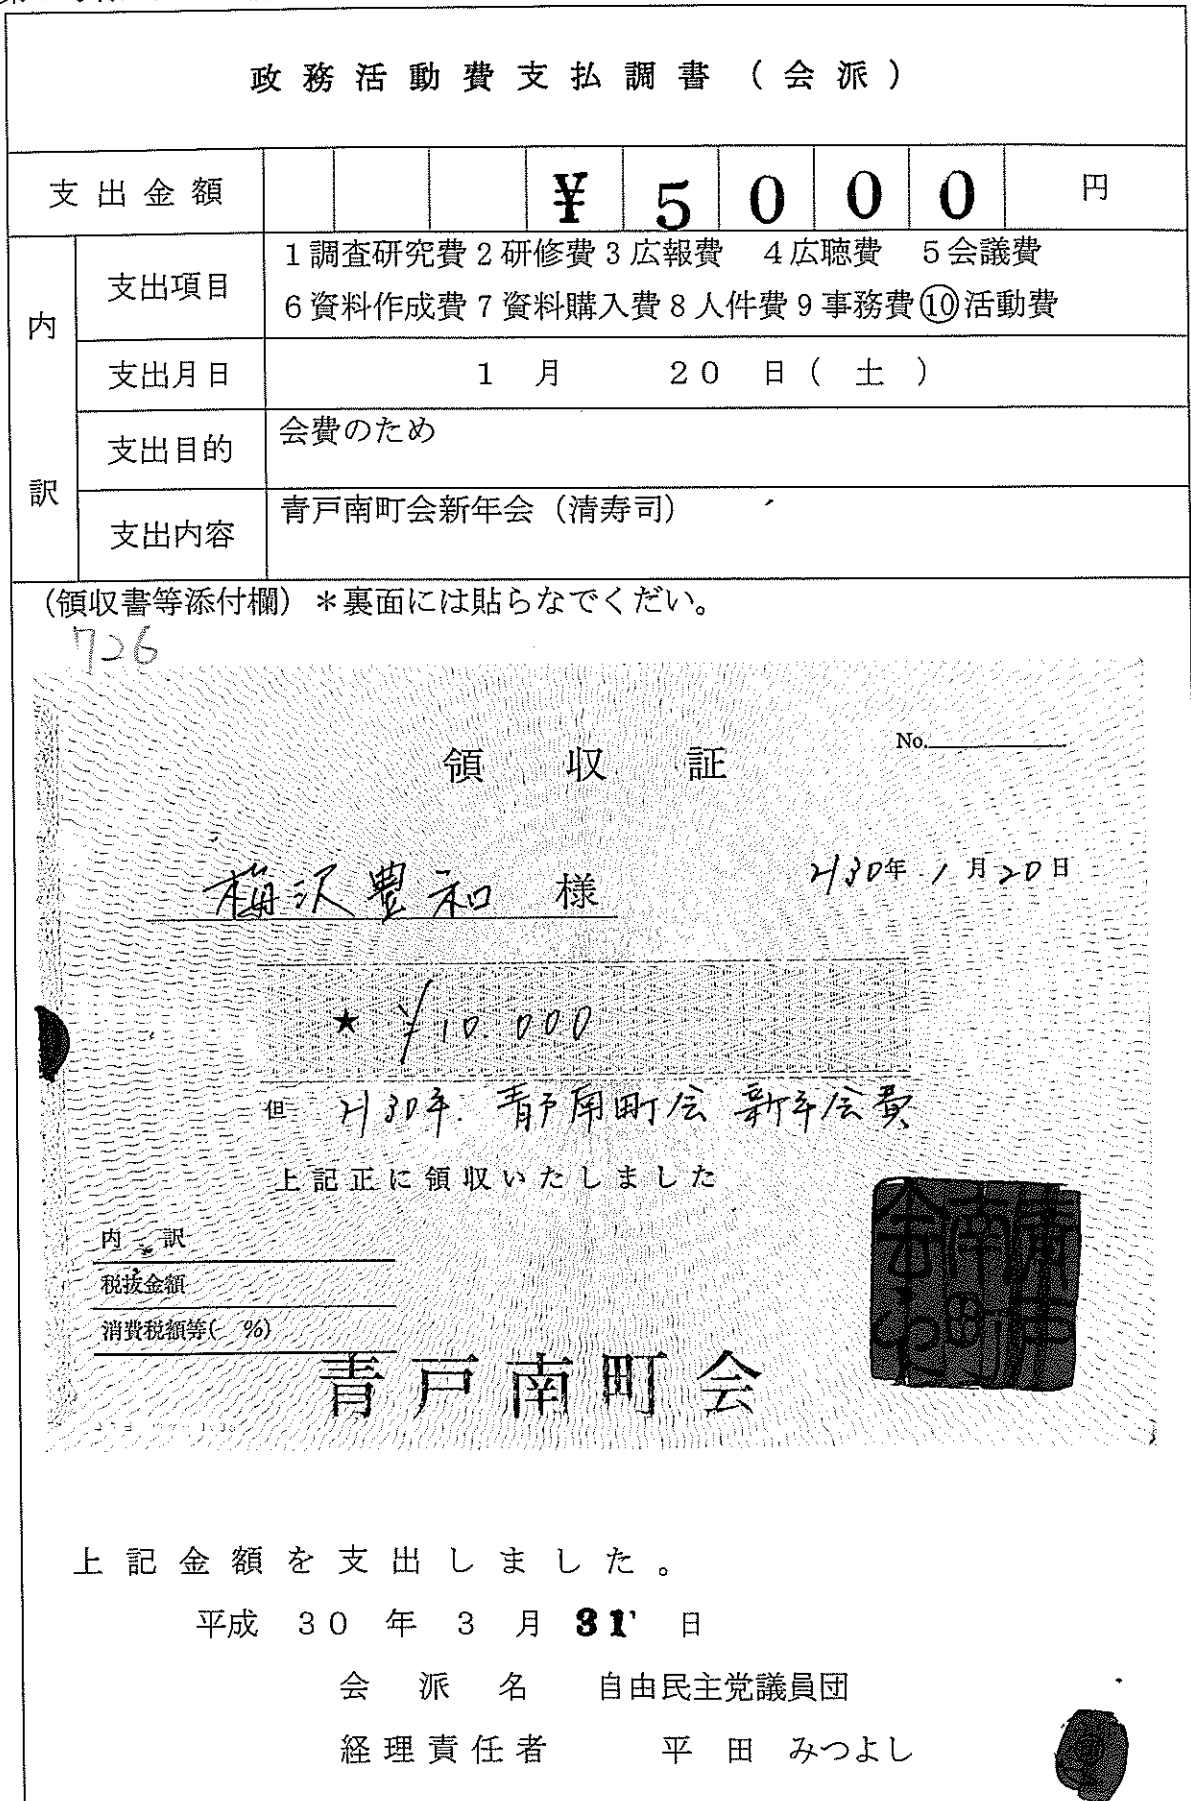 政務活動費支払調書（会派）
支出金額 ¥5000 円
内訳
支出項目 1調査研究費2研修費3広報費 4広聴費 5会議費
6資料作成費7資料購入費8人件費9事務費⑩活動費
支出月日 1月 20日（土）
支出目的 会費のため
支出内容 青戸南町会新年会（清寿司）
（領収書等添付欄）＊裏面には貼らなでくだい。
726
領収証
No.
梅沢豊和 様
H30年1月20日
★ ¥10.000
但 H30年. 青戸南町会 新年会費
上記正に領収いたしました
内訳
税抜金額
消費税額等( %)
青戸南町会
上記金額を支出しました。
平成 30 年 3 月 31 日
会派名 自由民主党議員団
経理責任者 平田 みつよし